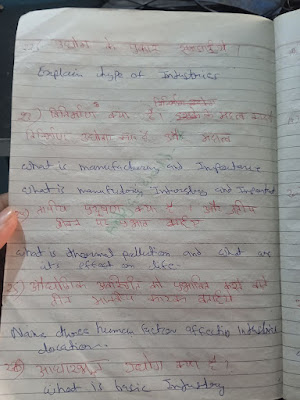 उद्योग के प्रकार बताइये।
Explain type of Industries
विनिर्माण क्या है।
विनिर्माण उद्योग क्या है और महत्व
what is manufacturing and Importance
what is manufactory Industry and Important
तापीय प्रदूषण क्या है। और
जीवन पर प्रभाव
what is thermal pollution and what are
its effect on life.
औद्योगिक अवस्थिति को प्रभावित करने वाले
तीन मानवीय कारक बताइये
Name three human factor affectin Industrial
location.
आधारभूत उद्योग क्या है।
what is basic Industry